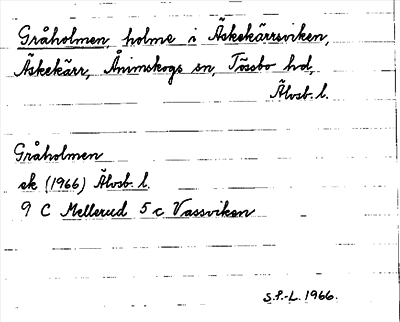 Gråholmen, holme i Äskekärrsviken,
Äskekärr, Ånimskogs sn, Tössbo hd,
Älvsb. l.
Gråholmen
ek (1966) Älvsb. l.
9 C Mellerud 5 c Vassviken
S.P.-L. 1966.